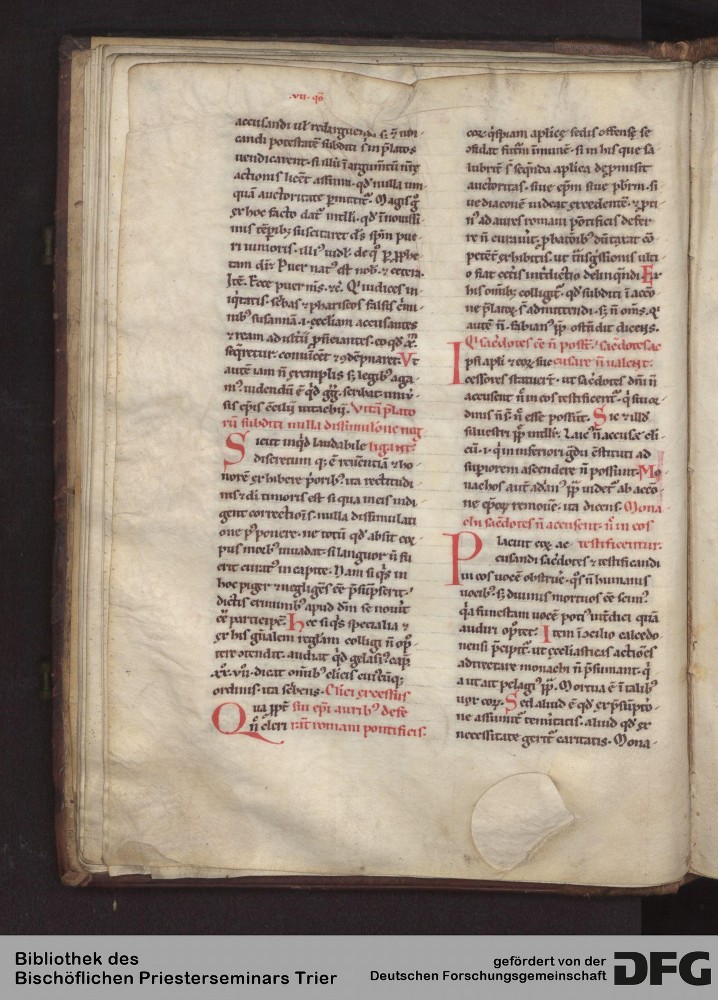 .vii. qo
accusandi ul' redarguendi s; et uen-
candi potestatem subditi sibi in p̄latos
uendicarent. si illud ī argumtū nrē
actionis licet assumi. qd' nulla un-
quā auctoritate pmittit'. Magis g
ex hoc facto dat' intelli. qd' ī nouissi-
mis tēpib; suscitaret ds spm pue-
ri iunioris. illi' uidl'. de q° p pphe-
tam dir. Puer nat' est nob. et cetera.
Itē. Ecce puer m's. et c. Q' iudices in-
iq̄tatis. scribas et phariseos falsis c̄mi-
nib' susannā. i. eccliam accusantes
et eam adulterii p̄nūtiantes. eo qd' xp̄m
seq̄retur. conuīcet et cōdēpnaret. Vt
autē iam n̄ exemplis s; legib' aga-
m'. uidendū ē qd' gg'. scribat. uniu'-
sis epis cecilii uitacbii. Vitā p̄lato
rū subditi nulla dissimulōne neg
Sicut inq̄d laudabile ligant'.
discretum q; ē reuerentiā et ho-
norē exhibere p̄orib'. ita rectitudi
nis et di timoris est si qua in eis indi
gent correctiōis. nulla dissimulati
one p'ponere. ne totū qd' absit cor
pus morb' inuadat. si languor n̄ fu
erit curat' in capite. Nam si q's in
hoc piger et negligēs ē p̄sūpserit.
dictis criminib' apud dm̄ se nouit
cē participē. Hec si q's specialia et
ex his gn̄alem reglam colligi n̄ op-
tere otendit. audiat qd' gelasi' cap.
.xx.vii. dicat omīb' clicis cui'cūq;
ordinis. ita scbens. Clici excessus
Qua pp̄t sui epi aurib' defe
q° n̄ cleri rāt romani pontificis.
cor. q'spiam aplice sedis offensę se
ostidat futm̄ īmune. si in his que sa
lubrit s'seq̄nda aplica dep̄misit
auctoritas. siue epm siue pbrm. si
ue diaconē uideat excedentē. et p̄ti
n' ad aures romani pontificis defer
re n̄ curauit. p̄batōib' dūtaxat cō
petēt exhibitis. ut tn̄sg̃ssionis ulti
o fiat cet's int̄dictio delinq̄ndi. Ex
his omīb; colligit'. qd' subditi ī acco
ne p̄latox s' admittendi. s; n̄ om̄s. Q'
autē n̄. Fabian' pp̄. ostn̄dit dicens.
Q' sacdotes cē n̄ poss't. sacdotes ac
Ipsi apli et eor. sue cusare n̄ ualent.
cessores statuert. ut sacdotes dn̄i n̄
accusent n̄ in eos testificent'. q' sui or
dinis n̄ s't n° esse possunt. Sic et illd
siluestri pp̄. intlle. Laic' n̄ accusē cli
cū. i. q' in inferiori gdu cstituti ad
supiorem ascendere n̄ possunt. Mo
nachos aut' adrian' pp̄. uidet' ab accō
ne ep̄cor remoue. ita dicens. Mona
chi sacdotes n̄ accusent. n° in eos
Placuit eor ac- testificentur.
cusandi sacdotes et testificandi
in eos uocē obstrui. q's n̄ humanis
uocib' s; diuinis mortuos cē scim'.
q'a funestam uocē poti' int̄dici quā
audiri op̄tet. Item ī cōcilio calcedo
nensi p̄cipit'. ut eccliasticas actiōes
adtrectare monachi n̄ p̄sumant. q'
a ut ait pelagi' pp̄. Mortua ē ī talib'
uox cor. Sed aliud ē qd' ex p̄sūptō-
ne assumit' temeritatis. aliud qd' ex
necessitate gerit' caritatis. Mona-
Bibliothek des
Bischöflichen Priesterseminars Trier
gefördert von der
Deutschen Forschungsgemeinschaft DFG